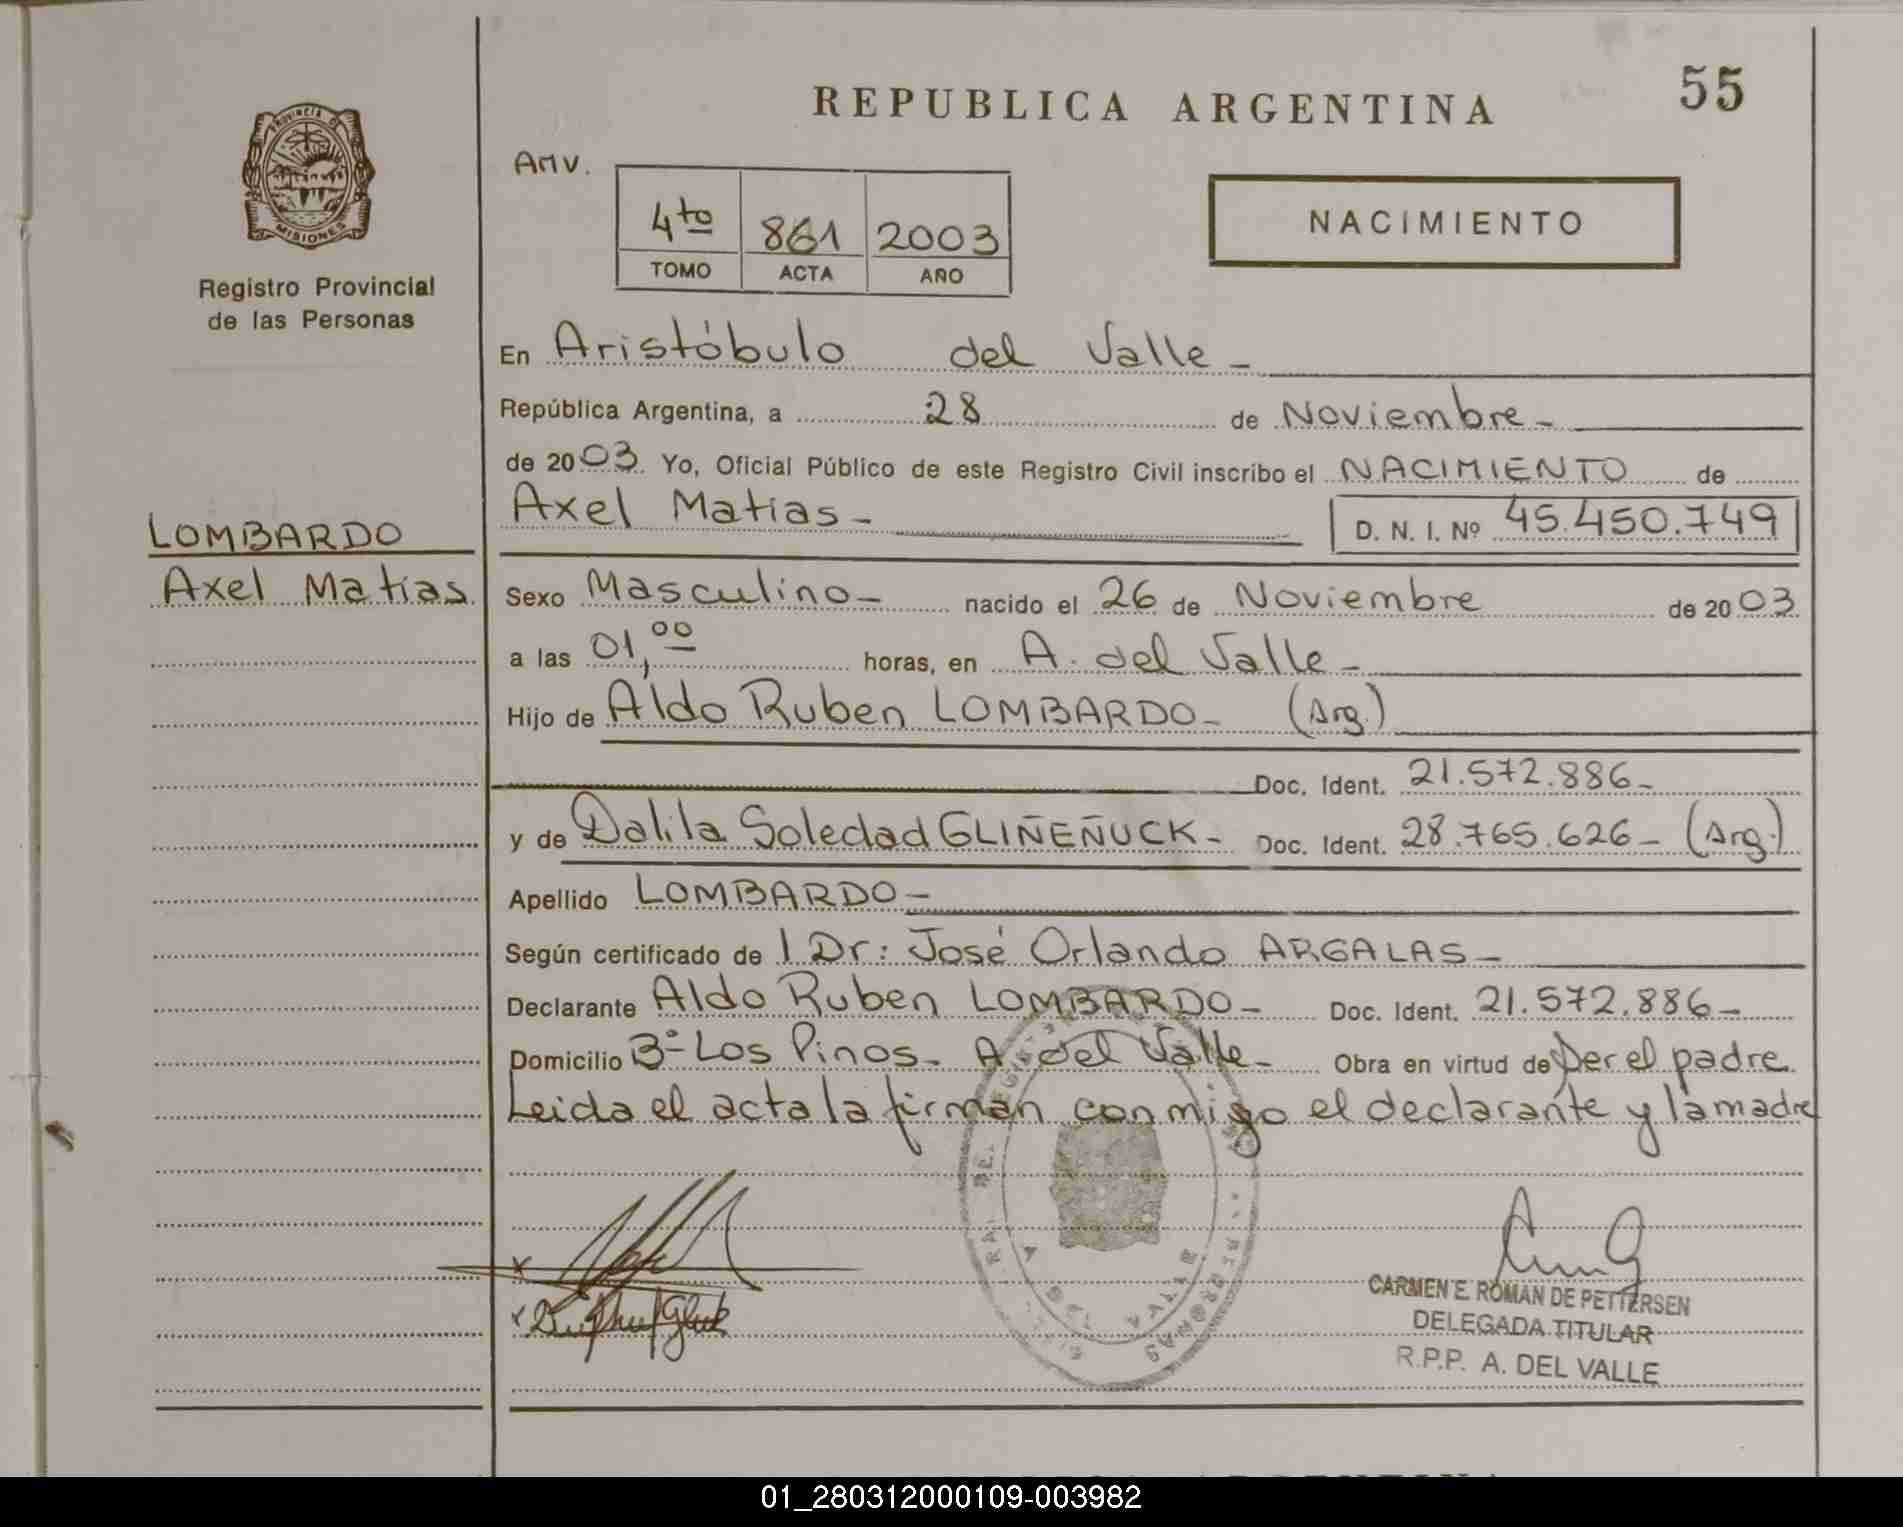 REPUBLICA ARGENTINA
55
PROVINCIA D
MISIONES
Registro Provincial
de las Personas
AMV.
4to 861 2003
TOMO ACTA AÑO
NACIMIENTO
En Aristóbulo del Valle -
República Argentina, a 28 de Noviembre -
de 2003 Yo, Oficial Público de este Registro Civil inscribo el NACIMIENTO de
Axel Matias - D. N. I. Nº 45.450.749
LOMBARDO
Axel Matias
Sexo Masculino - nacido el 26 de Noviembre de 2003
a las 01,00 horas, en A. del Valle -
Hijo de Aldo Ruben LOMBARDO - (Arg.)
Doc. Ident. 21.572.886 -
y de Dalila Soledad GLIÑEÑUCK - Doc. Ident. 28.765.626 - (Arg.)
Apellido LOMBARDO -
Según certificado de l Dr: José Orlando ARGALAS -
Declarante Aldo Ruben LOMBARDO - Doc. Ident. 21.572.886 -
Domicilio Bº Los Pinos - A. del Valle - Obra en virtud de ser el padre
Leida el acta la firman conmigo el declarante y la madre
CARMEN E. ROMAN DE PETTERSEN
DELEGADA TITULAR
R.P.P. A. DEL VALLE
01_280312000109-003982